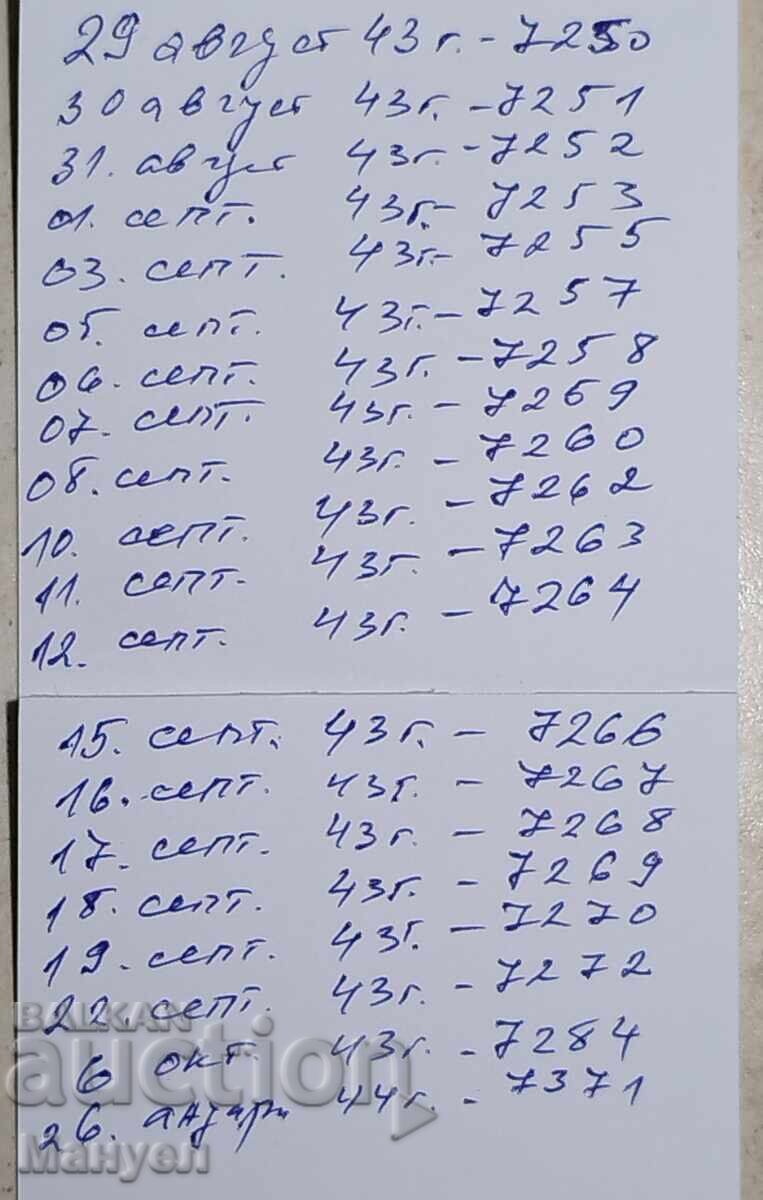 29 август 43 г. - 7250
30 август 43г. - 7251
31. август 43г. - 7252
01. септ. 43г. - 7253
03. септ. 43г. - 7255
05. септ. 43г. - 7257
06. септ. 43г. - 7258
07. септ. 43г. - 7259
08. септ. 43г. - 7260
10. септ. 43г. - 7262
11. септ. 43г. - 7263
12. септ. 43г. - 7264
15. септ. 43г. - 7266
16. септ. 43г. - 7267
17. септ. 43г. - 7268
18. септ. 43г. - 7269
19. септ. 43г. - 7270
22. септ. 43г. - 7272
6 окт. 43г. - 7284
26. 44г. - 7371
BALKAN
auction
Мануел